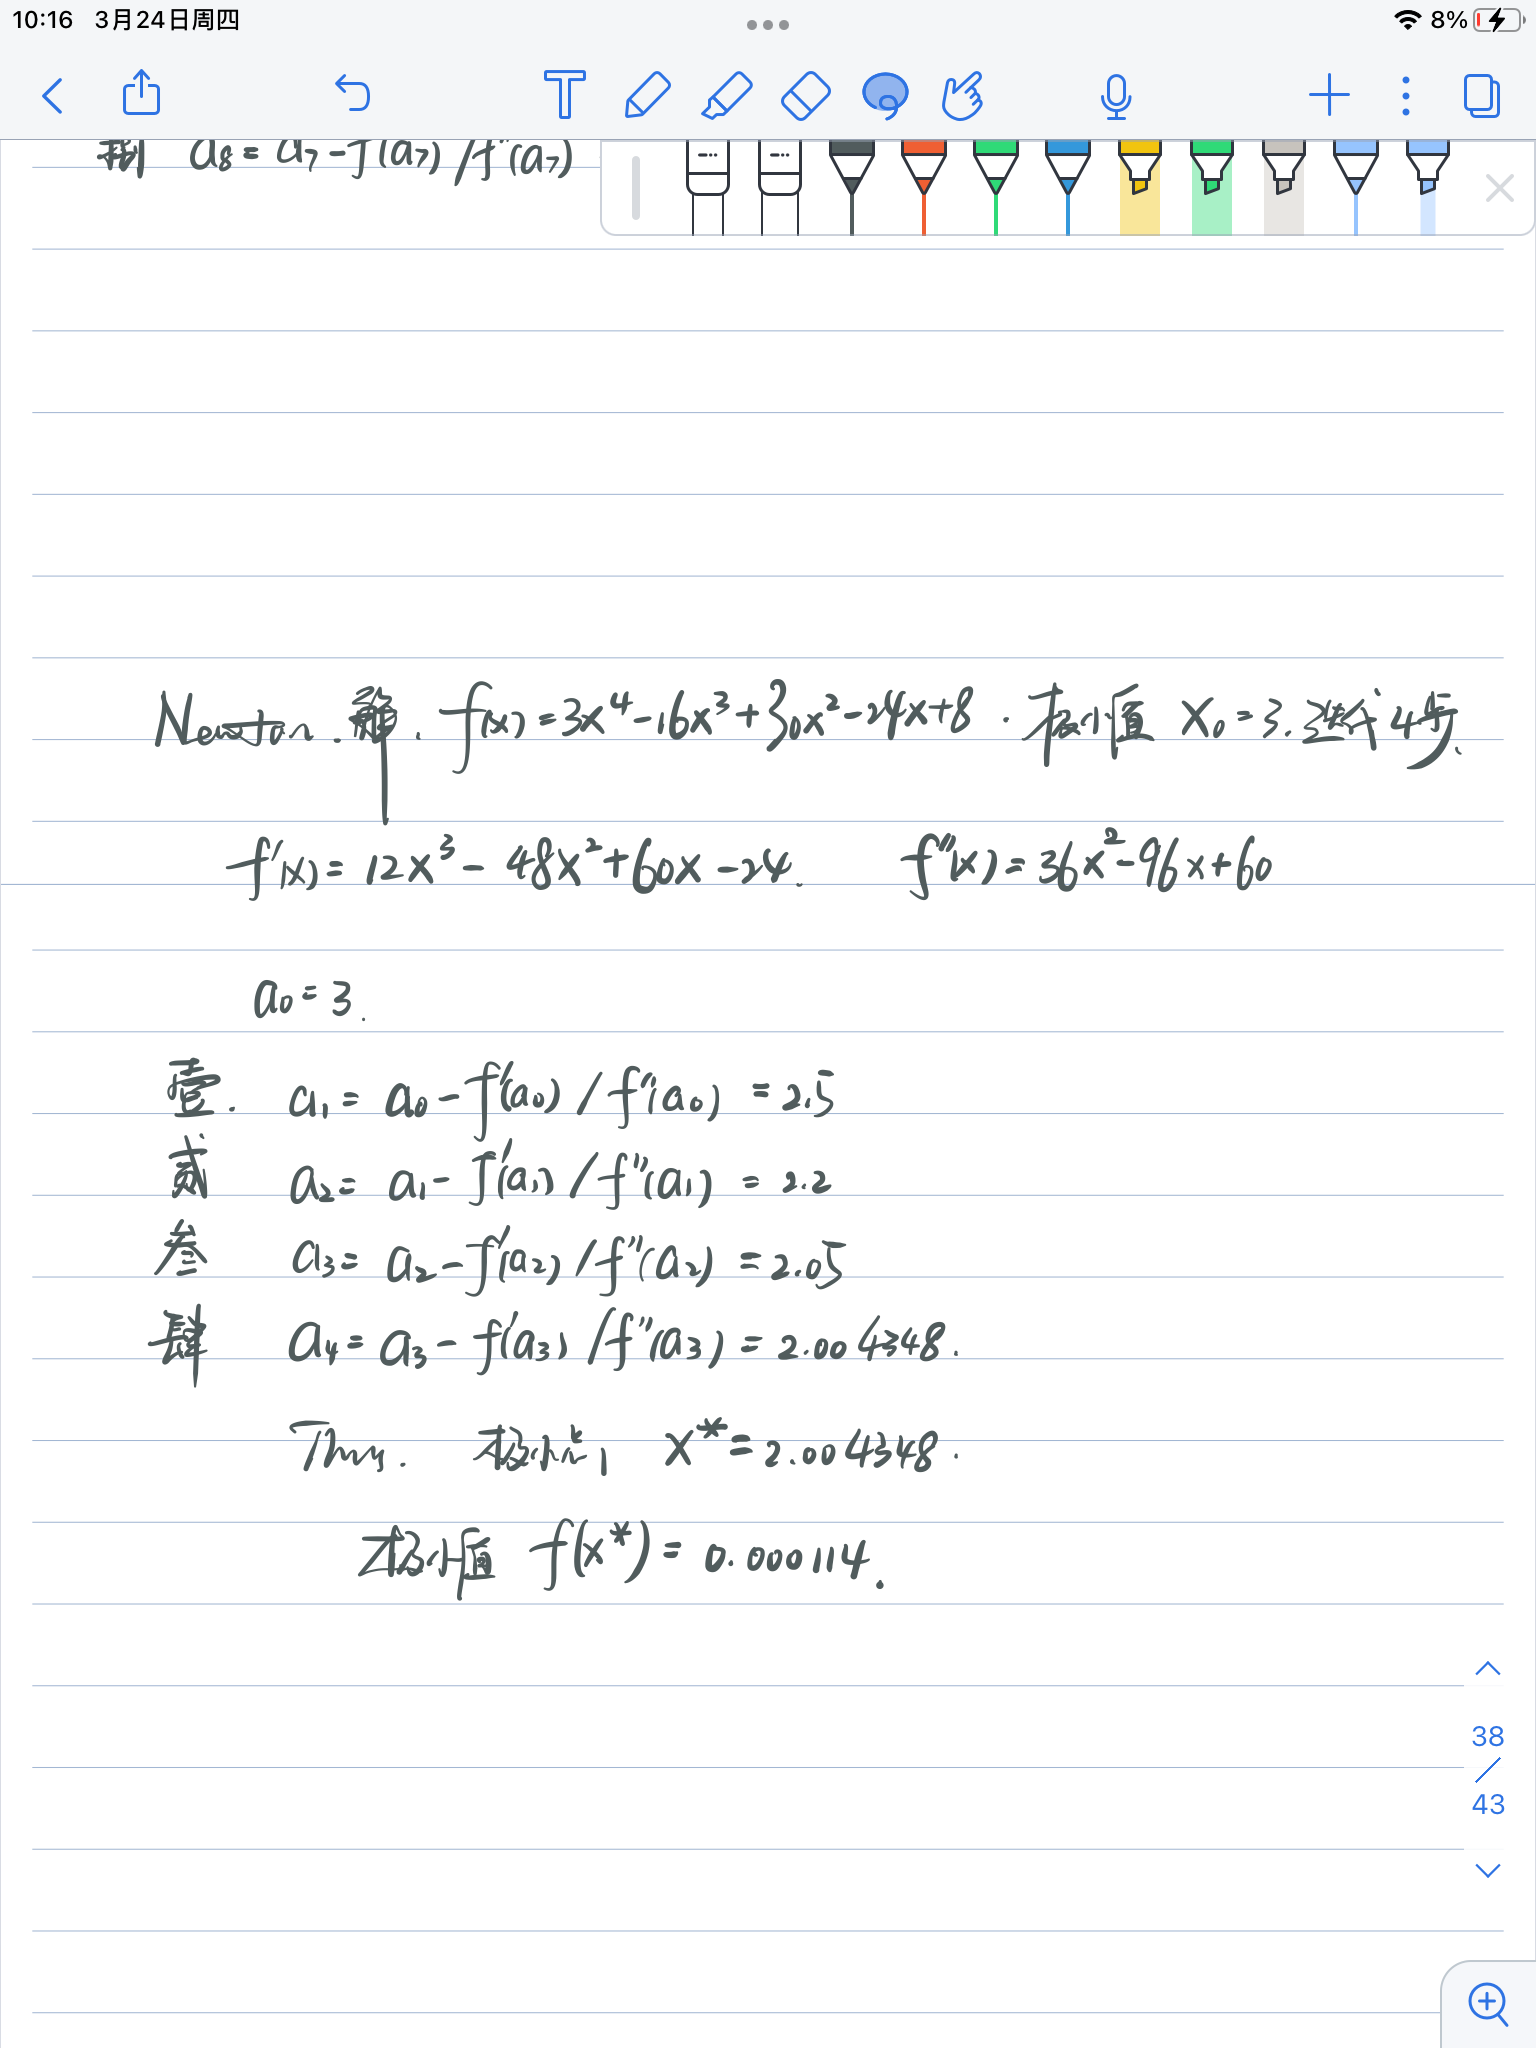 10:16 3月24日周四 8%
捌 a₈ = a₇ - f'(a₇) / f''(a₇)
Newton. 解. f(x) = 3x⁴ - 16x³ + 30x² - 24x + 8. 极小值 X₀ = 3. 迭代4步.
f'(x) = 12x³ - 48x² + 60x - 24. f''(x) = 36x² - 96x + 60
a₀ = 3.
壹. a₁ = a₀ - f'(a₀) / f''(a₀) = 2.5
贰 a₂ = a₁ - f'(a₁) / f''(a₁) = 2.2
叁 a₃ = a₂ - f'(a₂) / f''(a₂) = 2.05
肆 a₄ = a₃ - f'(a₃) / f''(a₃) = 2.004348.
Thus. 极小点, x* = 2.004348.
极小值 f(x*) = 0.000114.
38
/
43